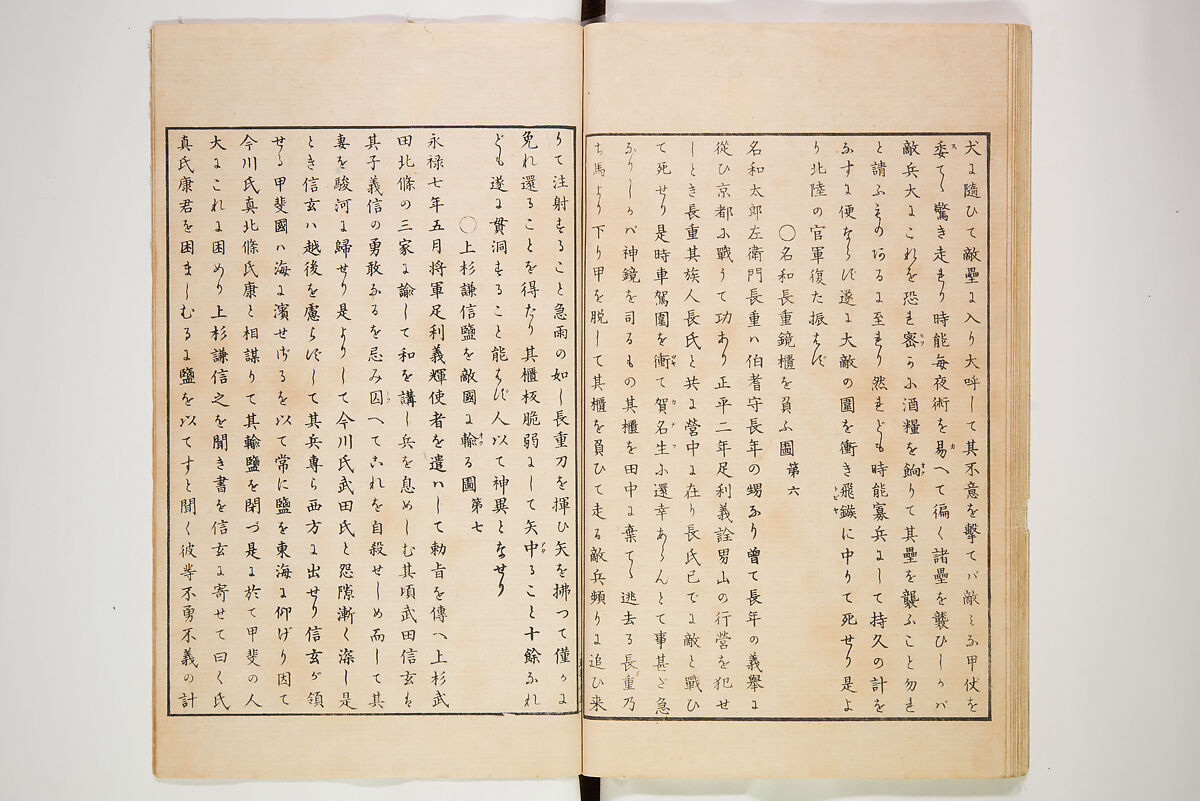 犬に隨ひて敵壘に入り大呼して其不意を擊てバ敵みな甲仗を
委てゝ驚き走れり時能每夜術を易へて徧く諸壘を襲ひしかバ
敵兵大にこれを恐れ密かに酒糧を餉りて其壘を襲ふこと勿れ
と請ふものあるに至れり然れども時能寡兵にして持久の計を
なすに便ならず遂に大敵の圍を衝き飛鏃に中りて死せり是よ
り北陸の官軍復た振はず
〇名和長重鏡櫃を負ふ圖 第六
名和太郎左衛門長重ハ伯耆守長年の甥なり曾て長年の義擧に
從ひ京都に戰りて功あり正平二年足利義詮男山の行營を犯せ
しとき長重其族人長氏と共に營中に在り長氏已でに敵と戰ひ
て死せり是時車駕圍を衝て賀名生に還幸あらんとて事甚ど急
なりしかバ神鏡を司るもの其櫃を田中に棄てゝ逃去る長重乃
ち馬より下り甲を脱して其櫃を負ひて走る敵兵頻りに追ひ来
りて注射すること急雨の如し長重刀を揮ひ矢を拂つて僅かに
免れ還ることを得たり其櫃板脆弱にして矢中ること十餘なれ
ども遂に貫洞すること能はず人以て神異となせり
〇上杉謙信鹽を敵國に輸る圖 第七
永禄七年五月将軍足利義輝使者を遣ハして勅旨を傳へ上杉武
田北條の三家に諭して和を講し兵を息めしむ其頃武田信玄も
其子義信の勇敢なるを忌み囚へてこれを自殺せしめ而して其
妻を駿河に歸せり是よりして今川氏武田氏と怨隙漸く深し是
とき信玄ハ越後を慮らずして其兵專ら西方に出せり信玄が領
せる甲斐國ハ海に濱せざるを以て常に鹽を東海に仰げり因て
今川氏真北條氏康と相謀りて其輸鹽を閉づ是に於て甲斐の人
大にこれに困めり上杉謙信之を聞き書を信玄に寄せて曰く氏
真氏康君を困ましむるに鹽を以てすと聞く彼等不勇不義の計